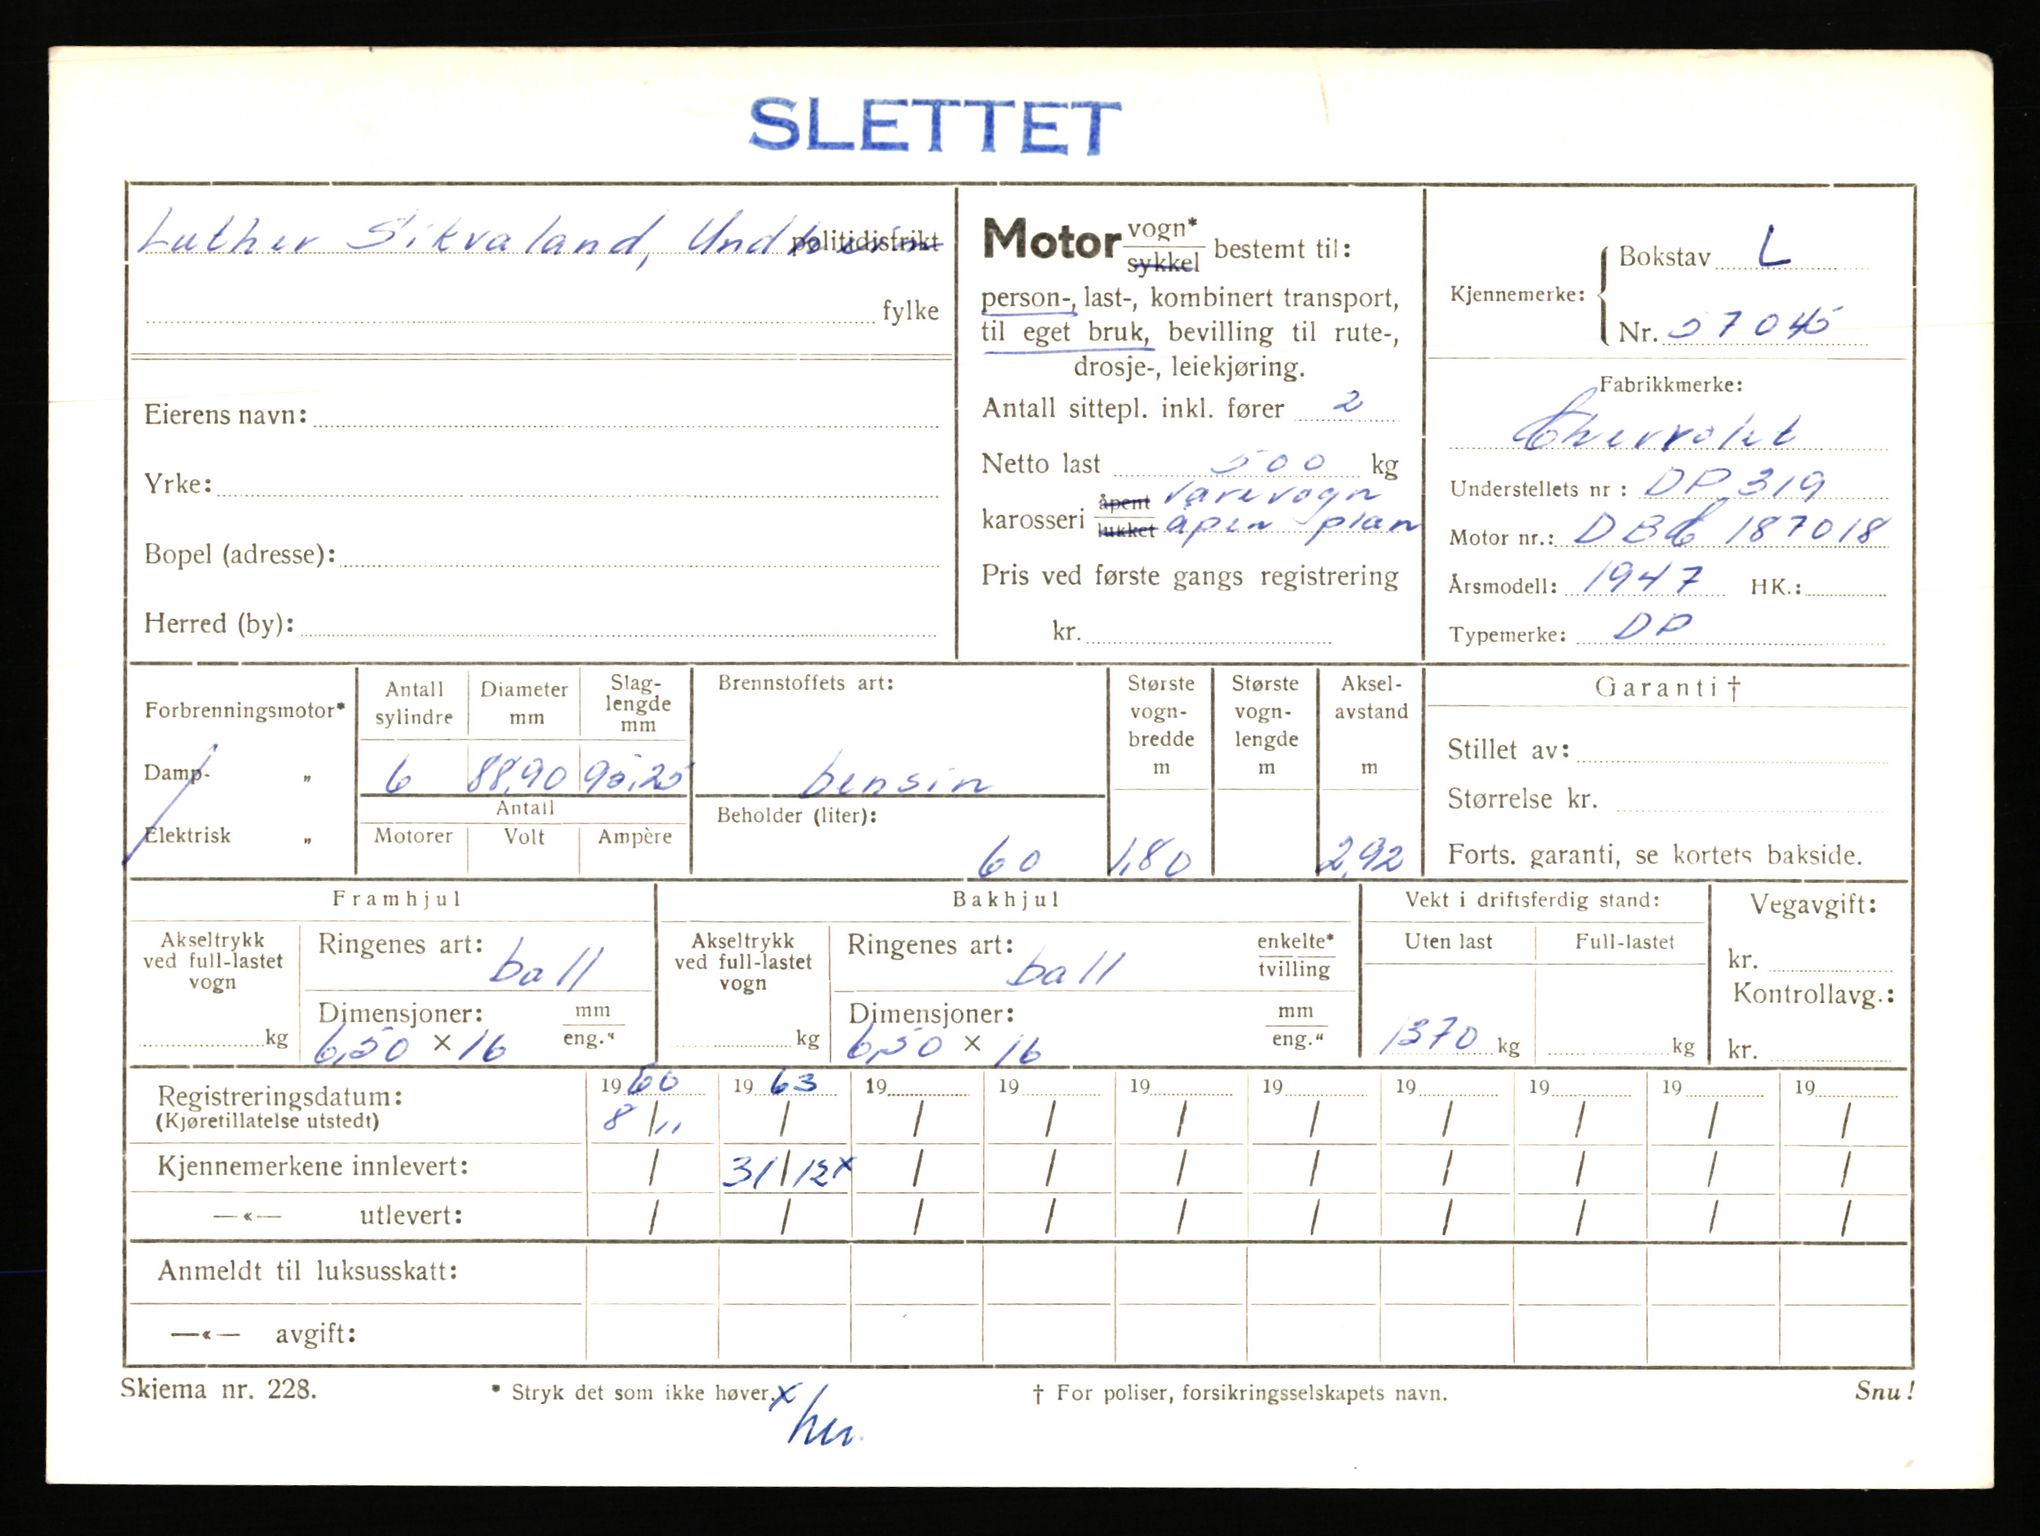 SLETTET
Luther Sikvaland, Undheim politidistrikt
fylke
Eierens navn:
Yrke:
Bopel (adresse):
Herred (by):
Motor vogn* sykkel bestemt til:
person-, last-, kombinert transport,
til eget bruk, bevilling til rute-,
drosje-, leiekjøring.
Antall sittepl. inkl. fører 2
Netto last 500 kg
karosseri åpent varevogn
lukket åpen plan
Pris ved første gangs registrering
kr.
Kjennemerke: Bokstav L
Nr. 57045
Fabrikkmerke:
Chevrolet
Understellets nr : DP. 319
Motor nr.: DBC 187018
Årsmodell: 1947 HK.:
Typemerke: DP
Forbrenningsmotor*
Damp- „
Elektrisk „
Antall sylindre
Diameter mm
Slag-lengde mm
6 88,90 95,25
Antall
Motorer Volt Ampère
Brennstoffets art:
bensin
Beholder (liter):
60
Største vogn-bredde m
1,80
Største vogn-lengde m
Aksel-avstand m
2,92
Garanti †
Stillet av:
Størrelse kr.
Forts. garanti, se kortets bakside.
Framhjul
Akseltrykk ved full-lastet vogn
kg
Ringenes art: ball
Dimensjoner: mm
6,50 × 16 eng."
Bakhjul
Akseltrykk ved full-lastet vogn
kg
Ringenes art: ball enkelte* tvilling
Dimensjoner: mm
6,50 × 16 eng."
Vekt i driftsferdig stand:
Uten last Full-lastet
1370 kg kg
Vegavgift:
kr.
Kontrollavg.:
kr.
Registreringsdatum: 1960 1963 19 19 19 19 19 19 19 19
(Kjøretillatelse utstedt) 8/11 / / / / / / / / /
Kjennemerkene innlevert: / 31/12x / / / / / / / /
—«— utlevert: / / / / / / / / / /
Anmeldt til luksusskatt:
—«— avgift:
Skjema nr. 228. * Stryk det som ikke høver. † For poliser, forsikringsselskapets navn. Snu!
x